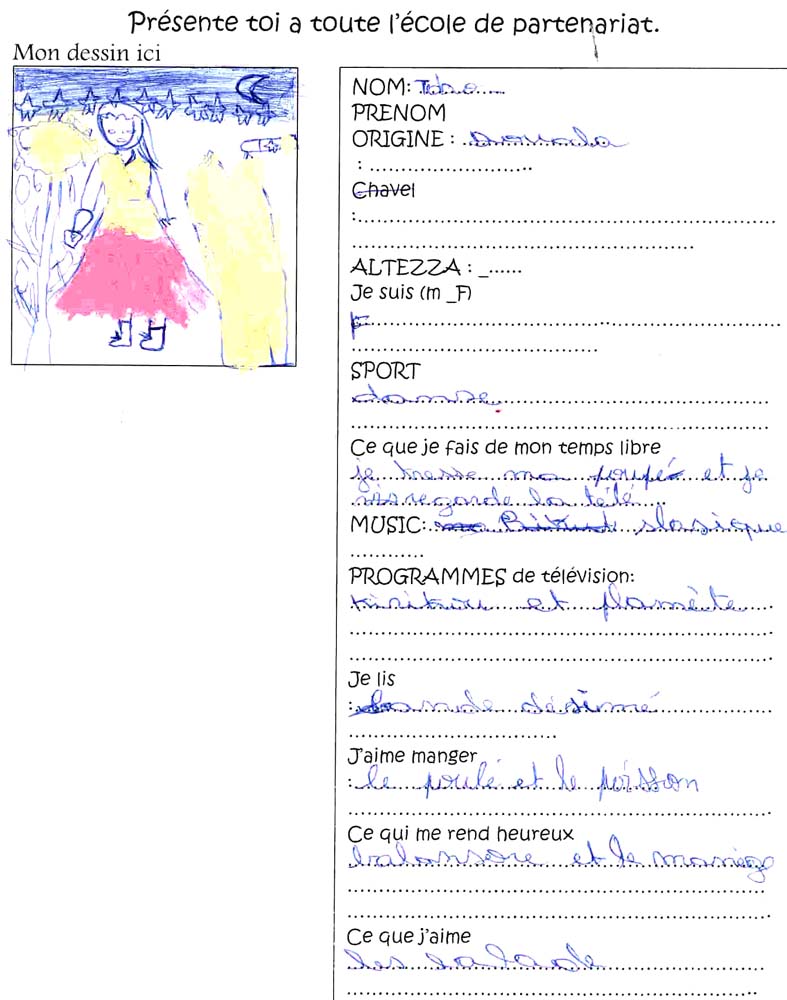 Présente toi a toute l'école de partenariat.
Mon dessin ici
NOM:
PRENOM
ORIGINE : Douala
:
Chavel
:
ALTEZZA : _
Je suis (m _F)
F
SPORT
danse
Ce que je fais de mon temps libre
je tresse ma poupé et je
regarde la télé
MUSIC: slasique
PROGRAMMES de télévision:
kirikou et planète
Je lis
: bande désiné
J'aime manger
: le poulé et le poisson
Ce qui me rend heureux
balansoire et le manège
Ce que j'aime
les balade